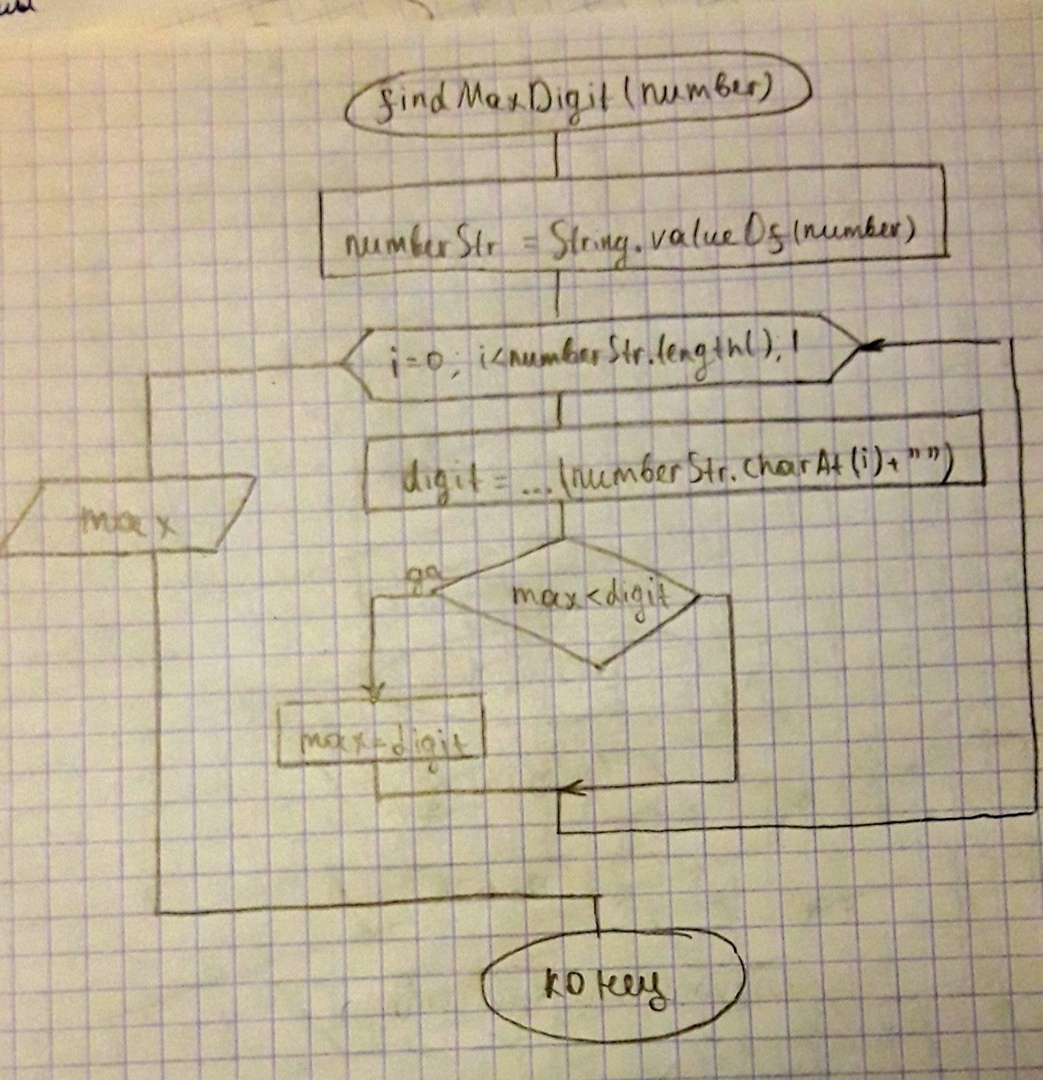 findMaxDigit(number)
numberStr = String.valueOf(number)
i=0; i<numberStr.length(); 1
digit = ...(numberStr.charAt(i)+"")
max
да
max<digit
max=digit
конец